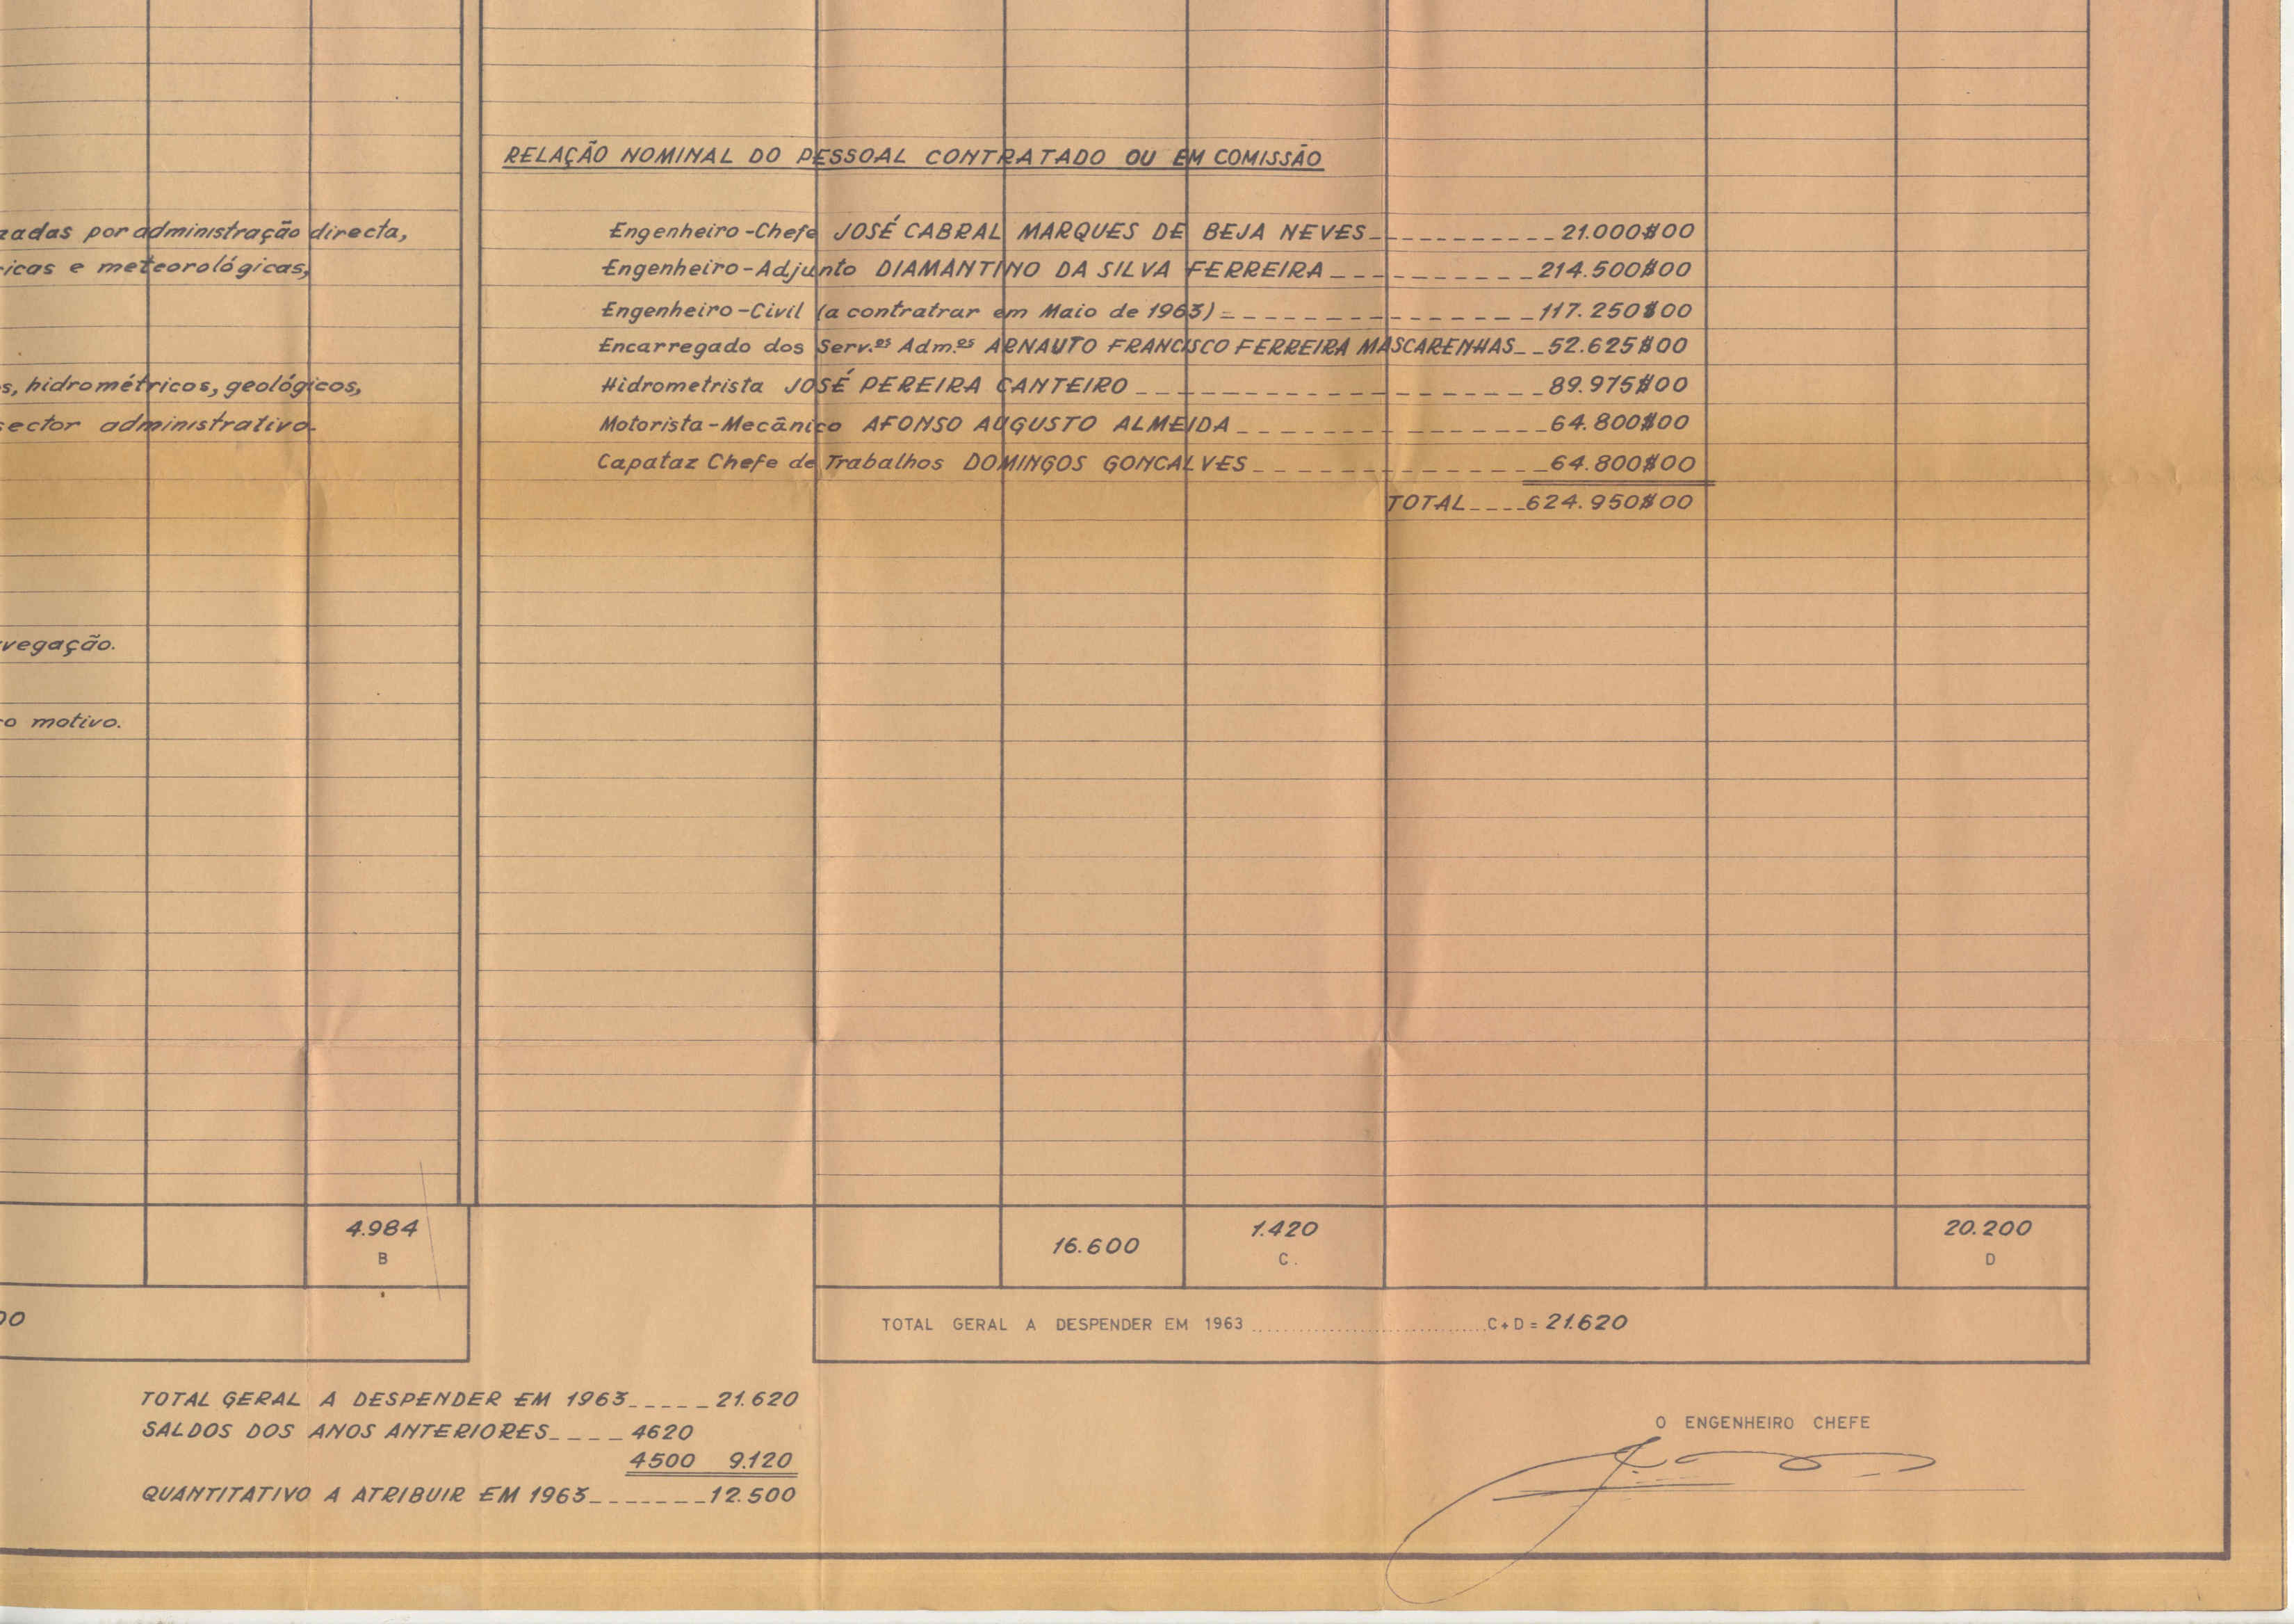 RELAÇÃO NOMINAL DO PESSOAL CONTRATADO OU EM COMISSÃO
zadas por administração directa,
icas e meteorológicas,
s, hidrométricos, geológicos,
sector administrativo.
vegação.
o motivo.
Engenheiro-Chefe JOSÉ CABRAL MARQUES DE BEJA NEVES 21.000$00
Engenheiro-Adjunto DIAMANTINO DA SILVA FERREIRA 214.500$00
Engenheiro-Civil (a contratrar em Maio de 1963) 117.250$00
Encarregado dos Serv.os Adm.os ARNAUTO FRANCISCO FERREIRA MASCARENHAS 52.625$00
Hidrometrista JOSÉ PEREIRA CANTEIRO 89.975$00
Motorista-Mecânico AFONSO AUGUSTO ALMEIDA 64.800$00
Capataz Chefe de Trabalhos DOMINGOS GONCALVES 64.800$00
TOTAL 624.950$00
4.984 16.600 1.420 20.200
B C. D
00
TOTAL GERAL A DESPENDER EM 1963 C+D = 21.620
TOTAL GERAL A DESPENDER EM 1963 21.620
SALDOS DOS ANOS ANTERIORES 4620
4500 9.120
QUANTITATIVO A ATRIBUIR EM 1963 12.500
O ENGENHEIRO CHEFE